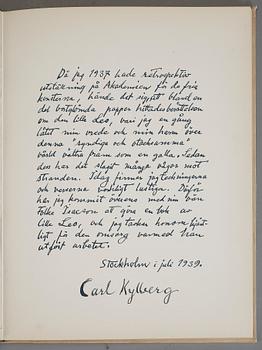 Då jag 1937 hade retrospektiv
utställning på Akademien för de fria
konsterna, hände det sig att bland en
del bortglömda papper hittades berättelsen
om den lille Leo, vari jag en gång
låtit min vrede och min harm över
denna "syndiga och otacksamma"
värld välta fram som en galla. Sedan
dess har det slagit många vågor mot
stranden. Idag finner jag teckningarna
och verserna lustiga. Därför
har jag kommit överens med min vän
Folke Isacson att göra en bok av
lille Leo, och jag tackar honom hjärt-
ligt för den omsorg varmed han
utfört arbetet.
Stockholm i juli 1939.
Carl Kylberg